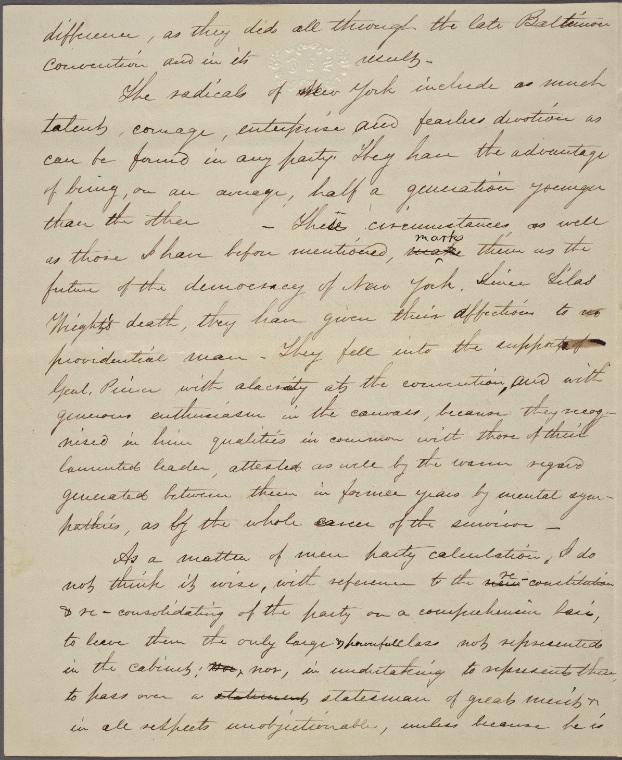 difference, as they did all through the late Baltimore
convention and in its result.
The radicals of New York include as much
talent, courage, enterprise and fearless devotion as
can be found in any party. They have the advantage
of being, on an average, half a generation younger
than the other - These circumstances, as well
as those I have before mentioned, mark them as the
future of the democracy of New York. Since Silas
Wright's death, they have given their affections to no
providential man - They fell into the support of
Genl. Pierce with alacrity at the convention, and with
generous enthusiasm in the canvass, because they recog-
nised in him qualities in common with those of their
lamented leader, attested as well by the warm regard
generated between them in former years by mental sym-
pathies, as by the whole career of the survivor -
As a matter of mere party calculation, I do
not think it wise, with reference to the re-constitution
& re-consolidating of the party on a comprehensive basis,
to leave them the only large & powerful class not represented
in the cabinet; nor, in undertaking to represent them,
to pass over a statesman of great merit &
in all respects unobjectionable, unless because he is